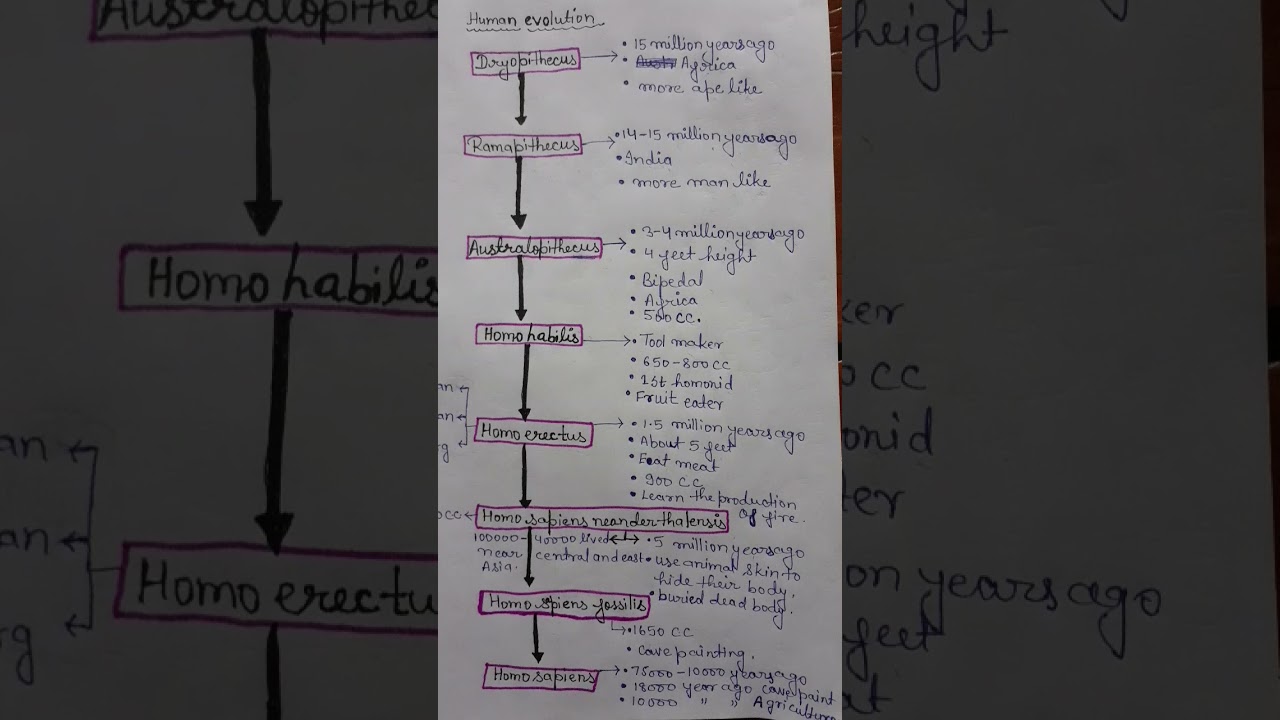 Human evolution
Dryopithecus
• 15 million years ago
• Africa
• more ape like
Ramapithecus
• 14-15 million years ago
• India
• more man like
Australopithecus
• 3-4 million years ago
• 4 feet height
• Bipedal
• Africa
• 500 CC.
Homo habilis
• Tool maker
• 650-800 CC
• 1st homonid
• Fruit eater
an
an
rg
Homo erectus
• 1.5 million years ago
• About 5 feet
• Eat meat
• 900 CC
• Learn the production of fire.
occ
Homo sapiens neanderthalensis
100000- 40000 lived
near central and east
Asia.
• 5 million years ago
• use animal skin to
hide their body.
• buried dead body.
Homo spiens fossilis
• 1650 CC
• cave painting.
Homo sapiens
• 75000-10000 years ago
• 18000 year ago cave paint
• 10000 " " Agriculture
Australopithec
Homo habilis
an
an
rg
Homo erectu
height
ker
0 CC
onid
ter
on years ago
feet
at